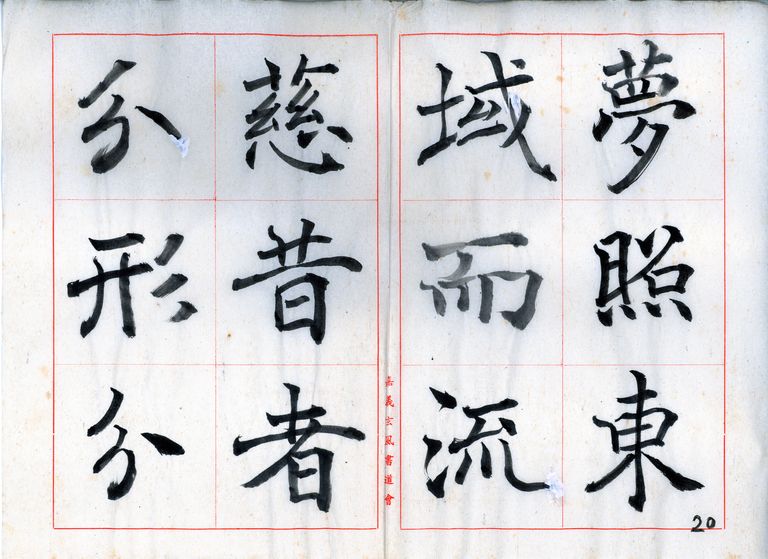 夢照東
域而流
慈昔者
分形分
嘉義玄風書道會
20